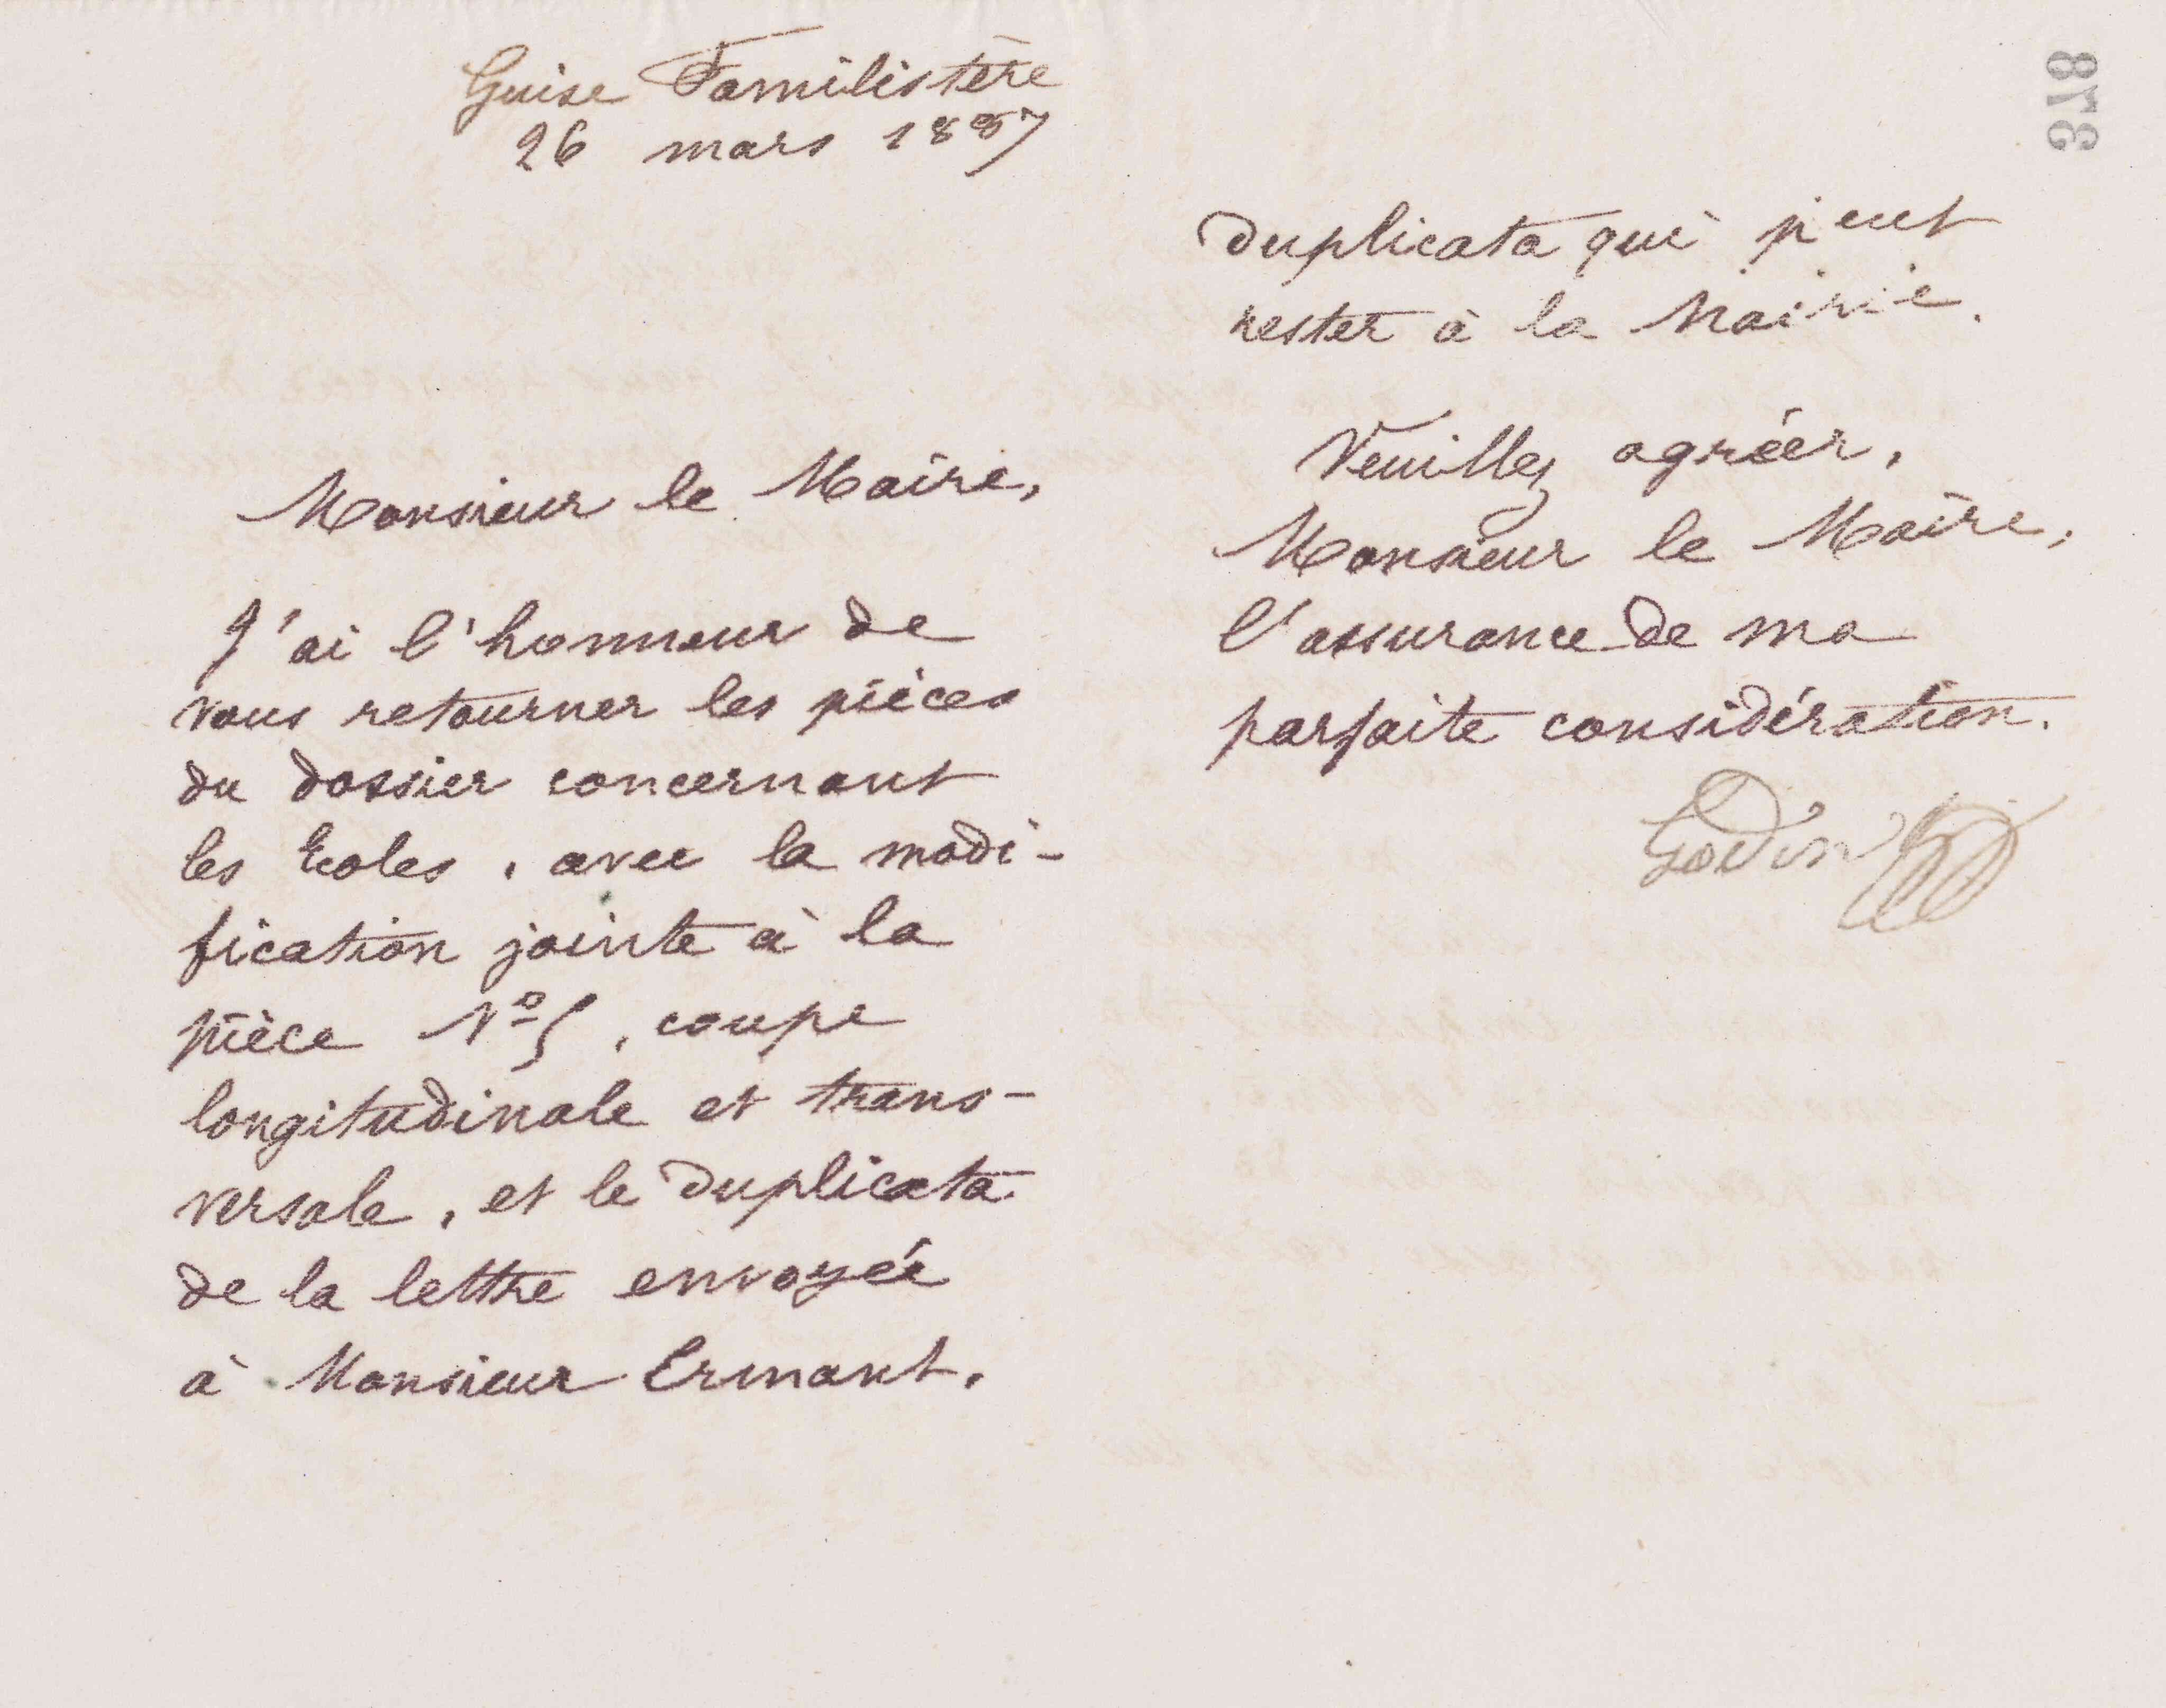 Guise Familistère
26 mars 1887
Monsieur le Maire,
J'ai l'honneur de
vous retourner les pièces
du dossier concernant
les Ecoles, avec la modi-
fication jointe à la
pièce No 5, coupe
longitudinale et trans-
versale, et le duplicata
de la lettre envoyée
à Monsieur Ermant,
378
duplicata qui peut
rester à la Mairie.
Veuillez agréer,
Monsieur le Maire,
l'assurance de ma
parfaite considération.
Godin